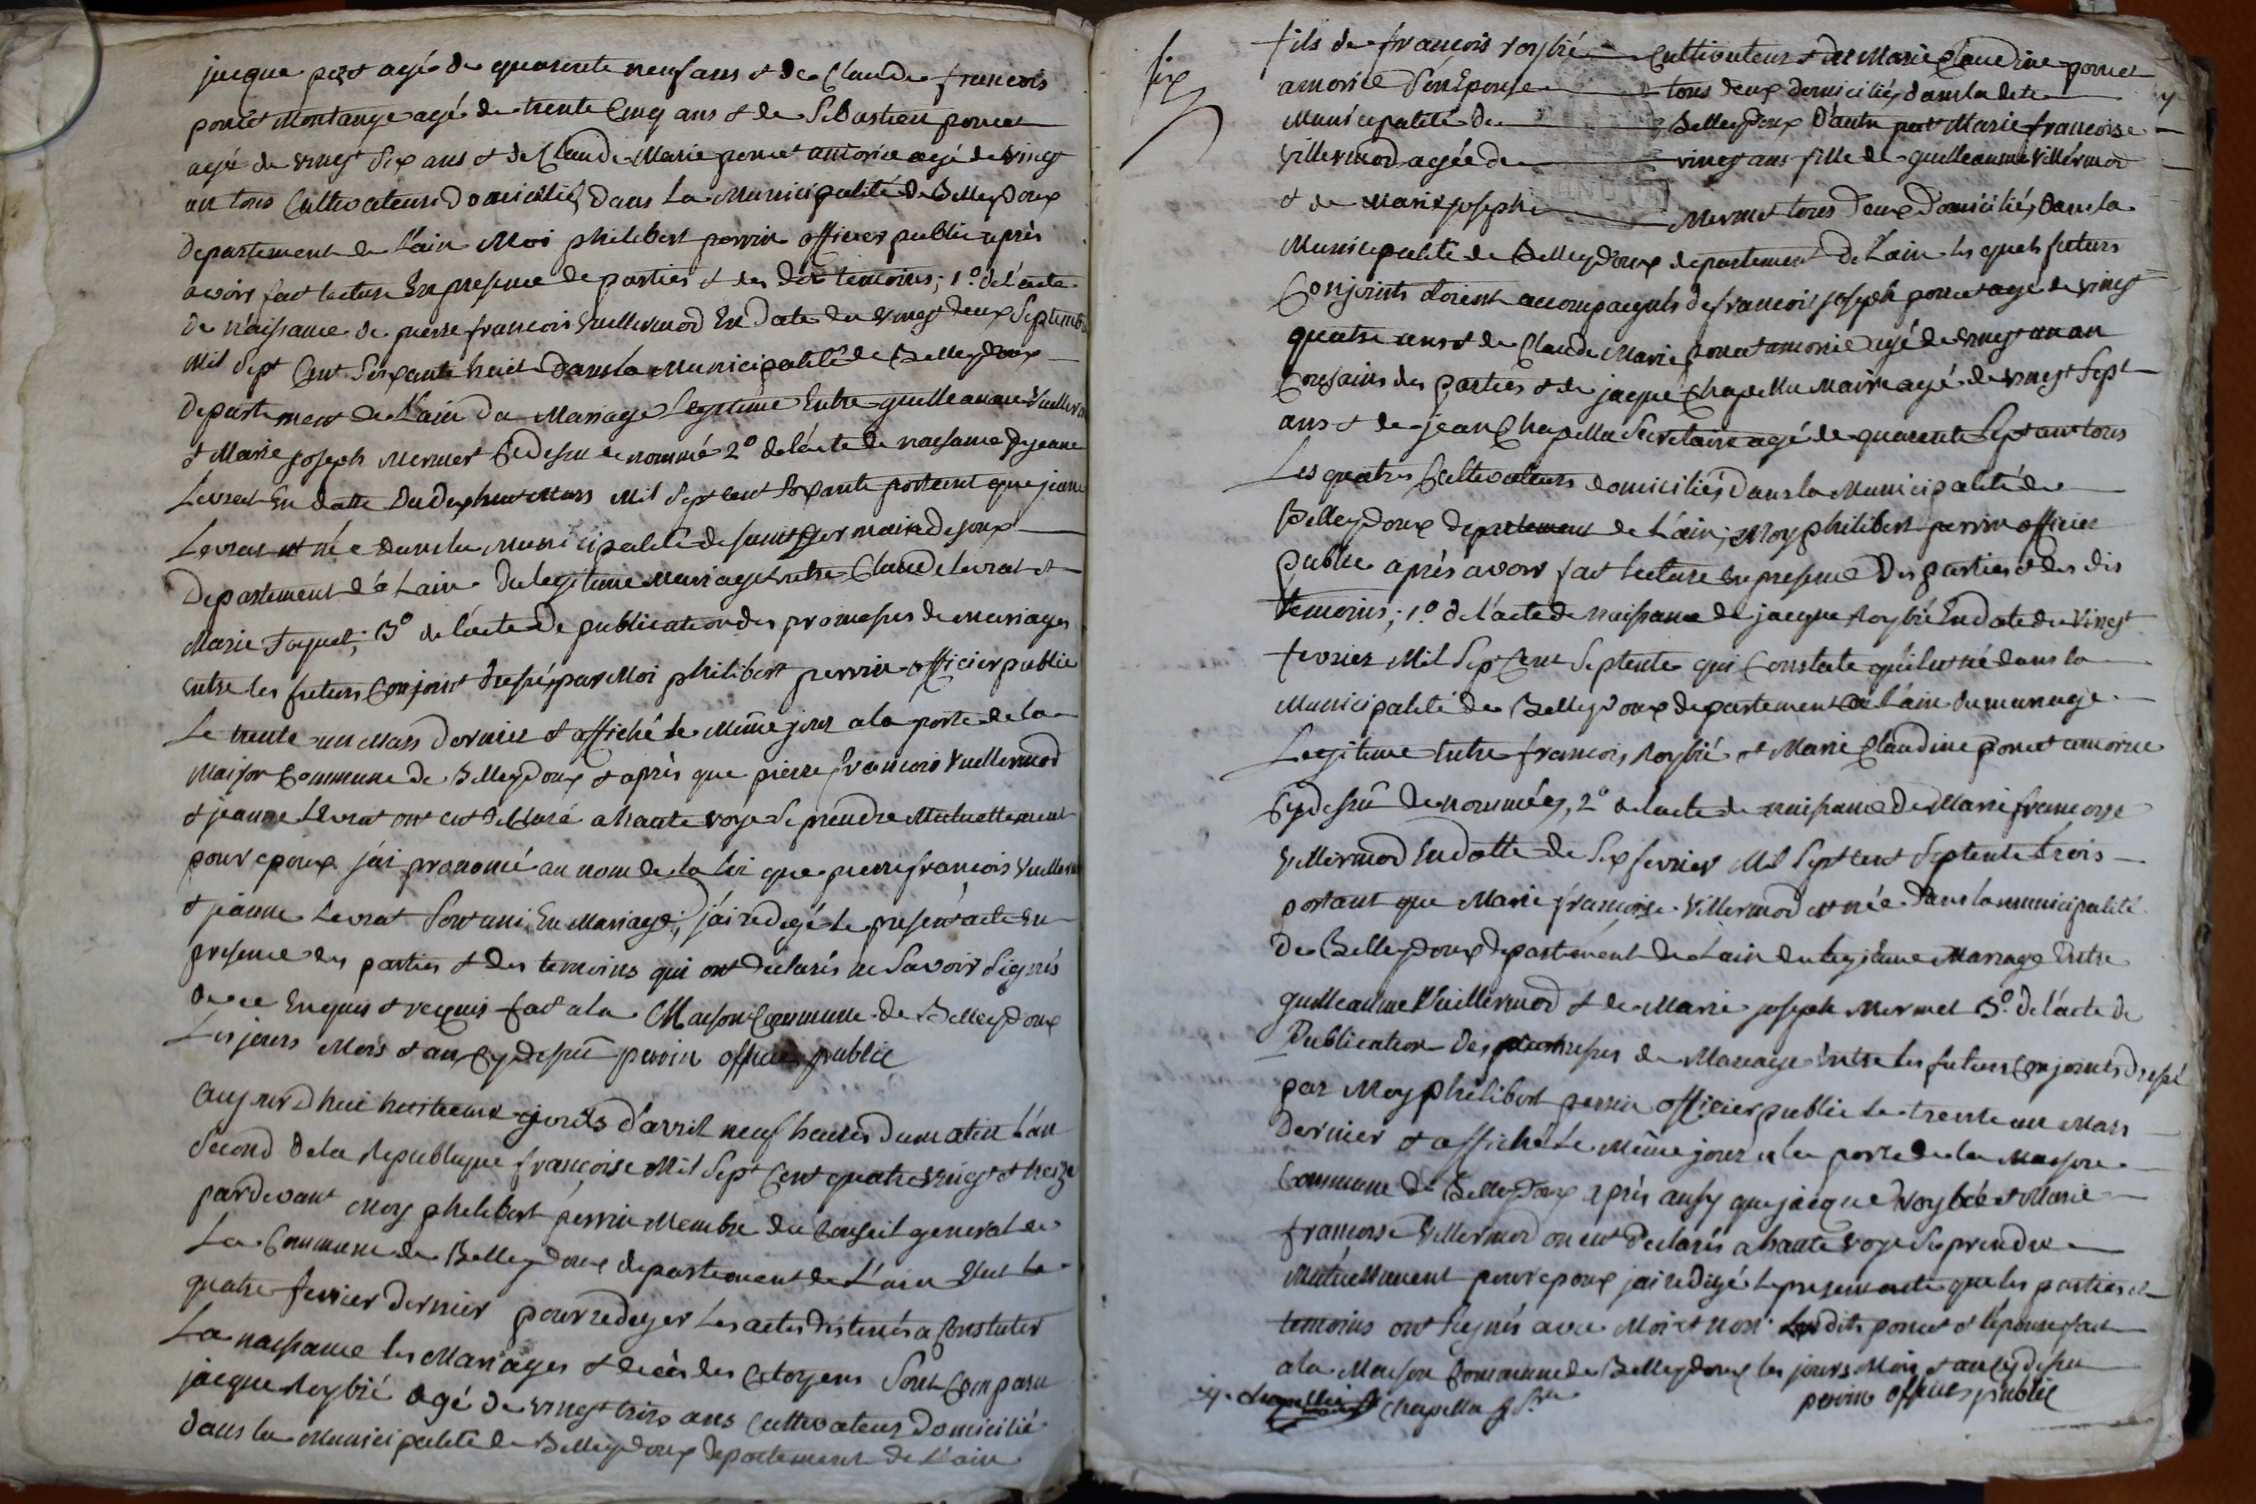 jacque pr agé de quarente neuf ans et de Claude francois
poncet Montange agé de trente Cinq ans et de Sebastien poncet
agé de vingt Six ans et de Claude Marie poncet amorice agé de vingt
un tous Cultivateurs Domiciliés dans La Municipalité de Belleydoux
departement de L'ain Moi philibert perrin officier public après
avoir fait lecture En presence de parties et des dits temoins; 1º de l'acte
de naissance de pierre francois Vuillermod En date du vingt deux Septembre
Mil Sept Cent Soixante huit dans la Municipalité de Belleydoux
departement de L'ain du Mariage Legitime Entre guilleaume Vuillermod
et Marie Joseph Mermet Cy dessu denommé 2º de l'acte de naissance de jeanne
Levrat En datte Du dixhuit Mars Mil Sept cent Soixante portant que jeanne
Levrat est née dans la Municipalité de saint Germain de joux
Departement de Lain du legitime Mariage Entre Claude Levrat et
Marie Taquet; 3º de l'acte de publication des promesses de Mariages
entre les futurs Conjoint dressé par Moi philibert perrin officier public
Le trente un Mars dernier et affiché le Même jour a la porte de la
Maison Commune de Belleydoux et après que pierre francois Vuillermod
et jeanne Levrat ont eut declaré a haute voye Se prendre Mutuellement
pour epoux j'ai prononcé au nom de la loi que pierre francois Vuillermod
et jeanne Levrat Sont uni En Mariage; j'ai redigé le present acte En
presence des parties et des temoins qui ont declarés ne Savoir Signés
de ce Enquis et requis fait a la Maison Commune de Belleydoux
Les jours Mois et an Cy dessu perrin officier public
aujourdhui huitieme jours d'avril neuf heures du matin L'an
Second de la Republique francoise Mil Sept Cent quatre vingt et treize
pardevant Moy philibert perrin Membre du Conseil general de
La Commune de Belleydoux departement de L'ain Elut le
quatre fevrier dernier pour rediger Les actes destinés a Constater
La naissance les Mariages et decès des Citoyens Sont Comparu
jacque Roybié agé de vingt trois ans Cultivateur Domicilié
dans la Municipalité de Belleydoux departement de L'ain
six
fils de francois roybié Cultivateur et de Marie Claudine poncet
amorice Son Epouse tous deux domiciliés dans la dite
Municipalité de Belleydoux D'autre part Marie francoise
Villermod agée de vingt ans fille de guilleaume Villermod
et de Marie joseph Mermet tous deux domiciliés dans la
Municipalité de Belleydoux departement de Lain les quels futurs
Conjoints etoient accompagnés de francois joseph poncet agé de vingt
quatre ans et de Claude Marie poncet amorice agé de vingt un an
Cousains des parties et de jacque Chapellu Maire agé de vingt Sept
ans et de jean Chapellu Secretaire agé de quarente Sept ans tous
Les quatres Cultivateurs domiciliés dans la Municipalité de
Belleydoux departement de L'ain; Moy philibert perrin officier
public après avoir fait lecture en presence des parties et des dis
temoins; 1º de l'acte de naissance de jacque Roybié En date du Vingt
fevrier Mil Sept Cent Septente qui Constate qu'il est né dans la
Municipalité de Belleydoux departement de L'ain du mariage
Legitime Entre francois Roybié et Marie Claudine poncet amorice
Cy dessu denommées, 2º de l'acte de naissance de Marie francoise
Villermod En datte de Six fevrier Mil Sept cent Septente trois
portant que Marie francoise Villermod est née dans la municipalité
de Belleydoux departement de Lain du legitime Mariage Entre
guilleaume Vuillermod et de Marie joseph Mermet 3º de l'acte de
Publication des promesses de Mariage Entre les futurs Conjoints dressé
par Moy philibert perrin officier public le trente un Mars
dernier et affiché le Même jour a la porte de la Maison
Commune de Belleydoux après aussy que jacque Roybié et Marie
francoise Villermod on eut declarés a haute voye Se prendre
Mutuellement pour epoux j'ai redigé le present acte que les parties et
temoins ont Signés avec Moi et non Lesdits poncet et l'epouse fait
a la Maison Commune de Belleydoux les jours Mois et an cy dessu
Chapellu perrin officier public